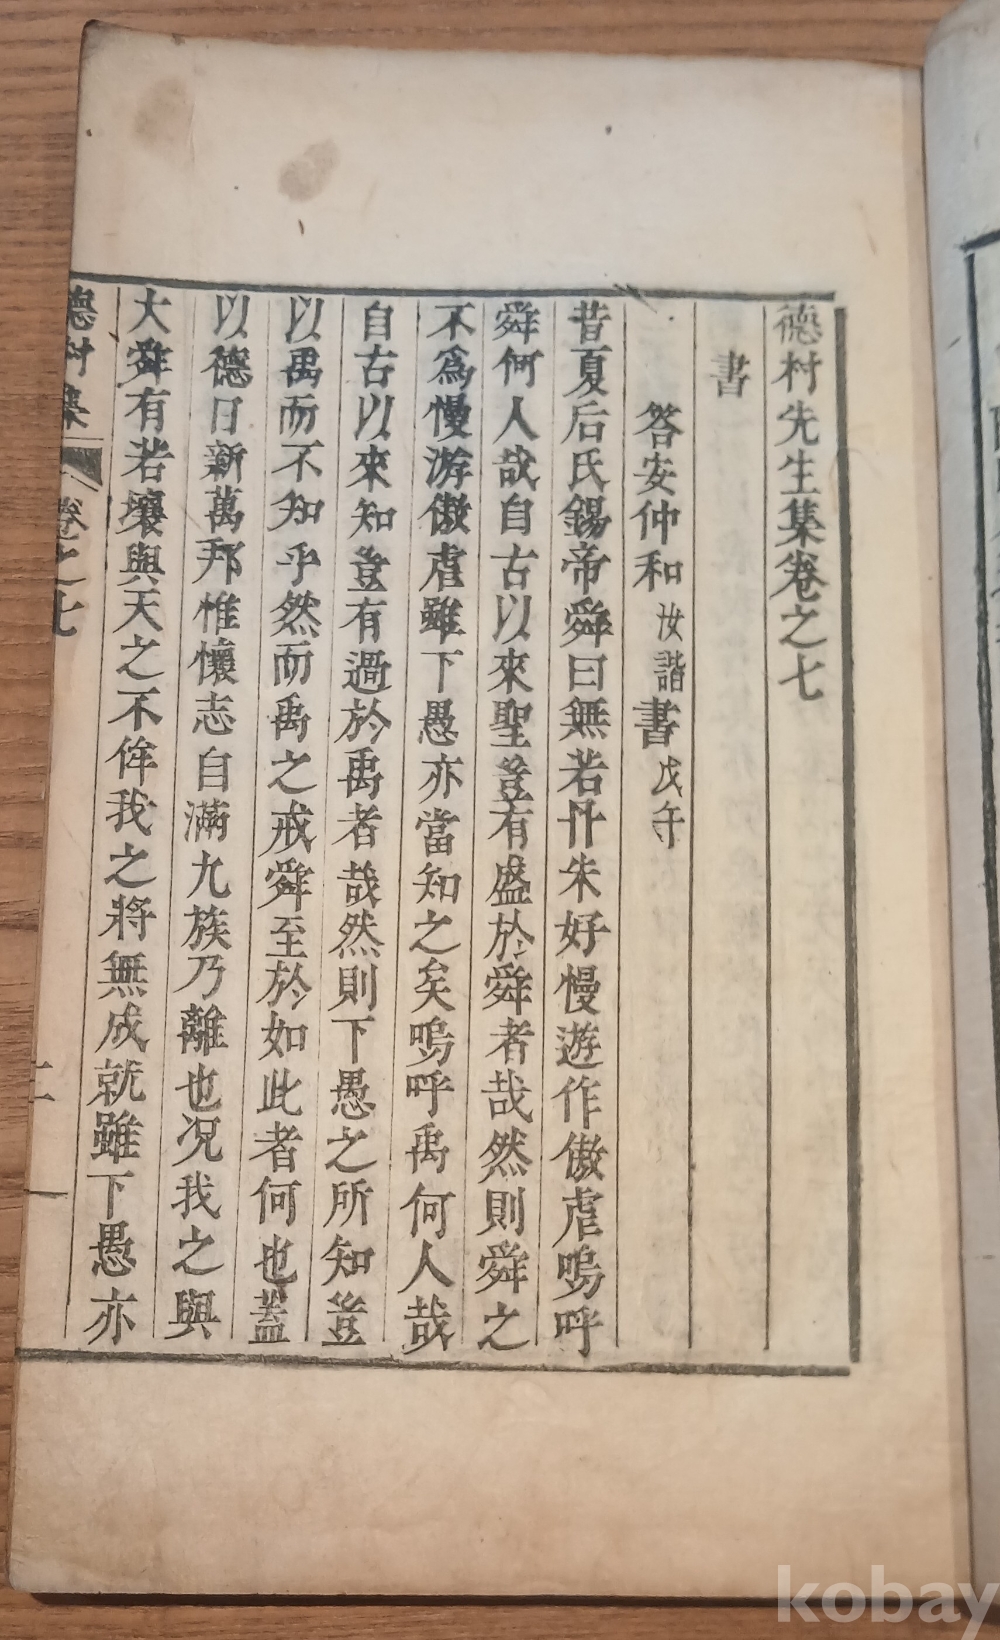 德村先生集卷之七
書
答安仲和汝諧書戊午
昔夏后氏錫帝舜曰無若丹朱好慢遊作傲虐嗚呼
舜何人哉自古以來聖豈有盛於舜者哉然則舜之
不爲慢游傲虐雖下愚亦當知之矣嗚呼禹何人哉
自古以來知豈有過於禹者哉然則下愚之所知豈
以禹而不知乎然而禹之戒舜至於如此者何也蓋
以德日新萬邦惟懷志自滿九族乃離也况我之與
大舜有若壤與天之不侔我之將無成就雖下愚亦
德村集 卷之七
kobay